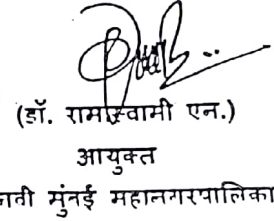 (डॉ. रामास्वामी एन.)
आयुक्त
नवी मुंबई महानगरपालिका